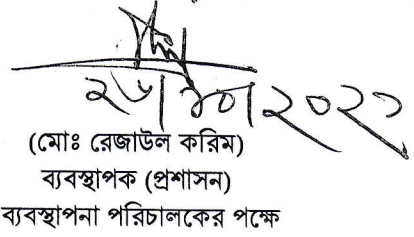 ২০২২
(মোঃ রেজাউল করিম)
ব্যবস্থাপক (প্রশাসন)
ব্যবস্থাপনা পরিচালকের পক্ষে